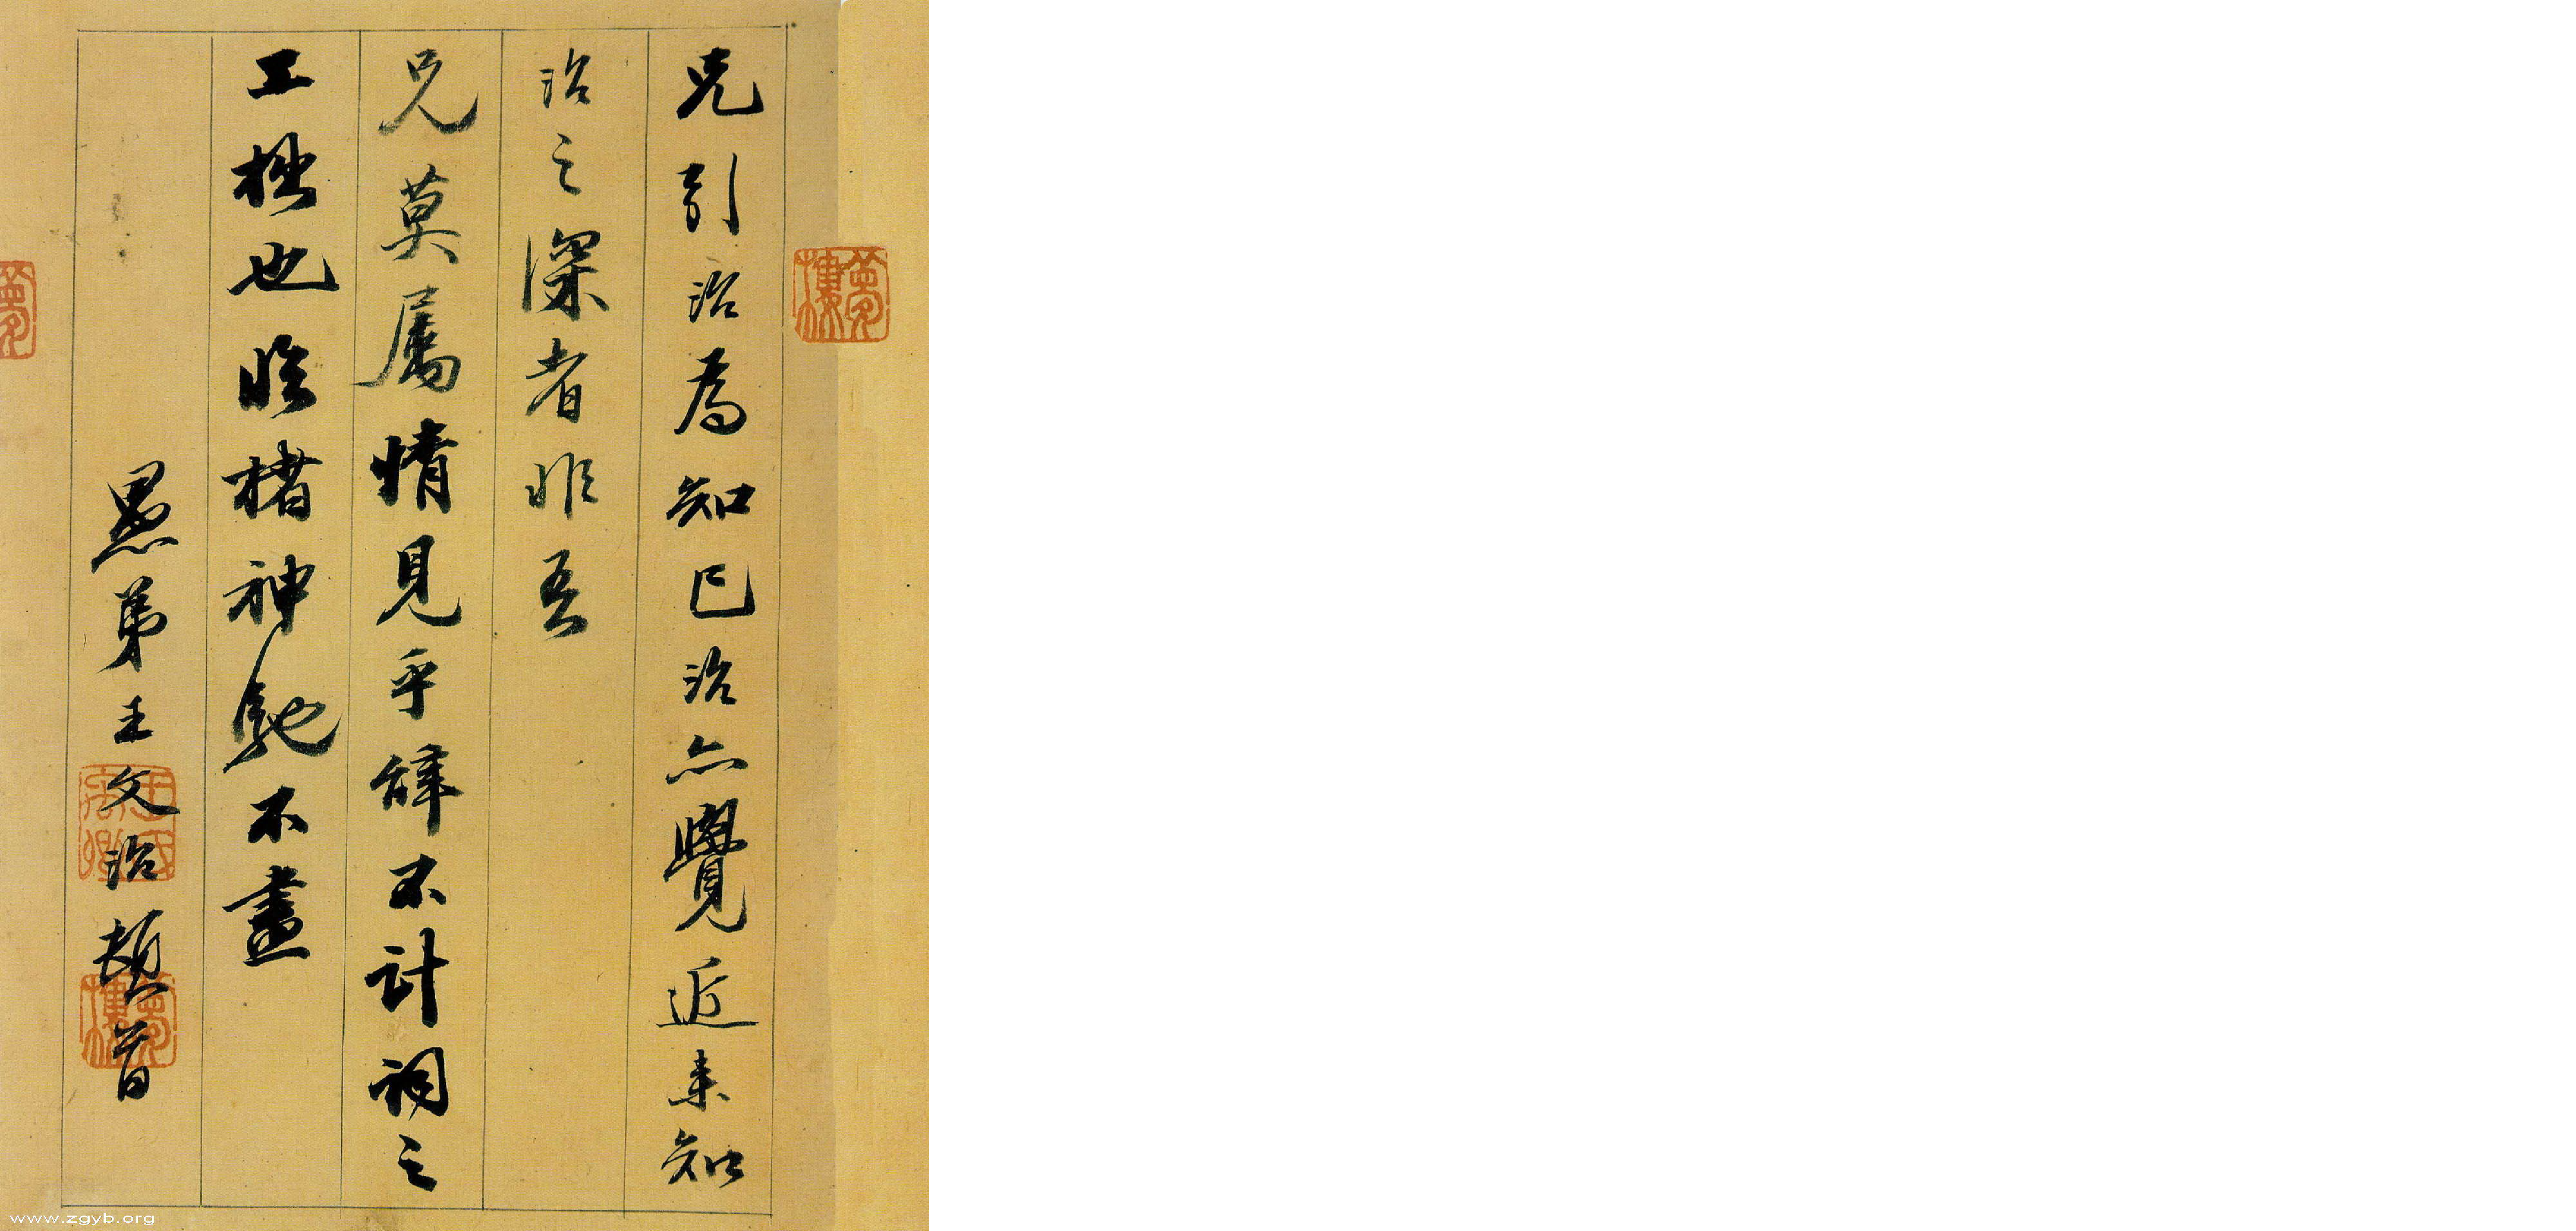 兄引治為知己治亦覺近來知
治之深者非吾
兄莫屬情見乎辭不計詞之
工拙也臨楮神馳不盡
愚弟王文治頓首
夢樓
夢樓
www.zgyb.org